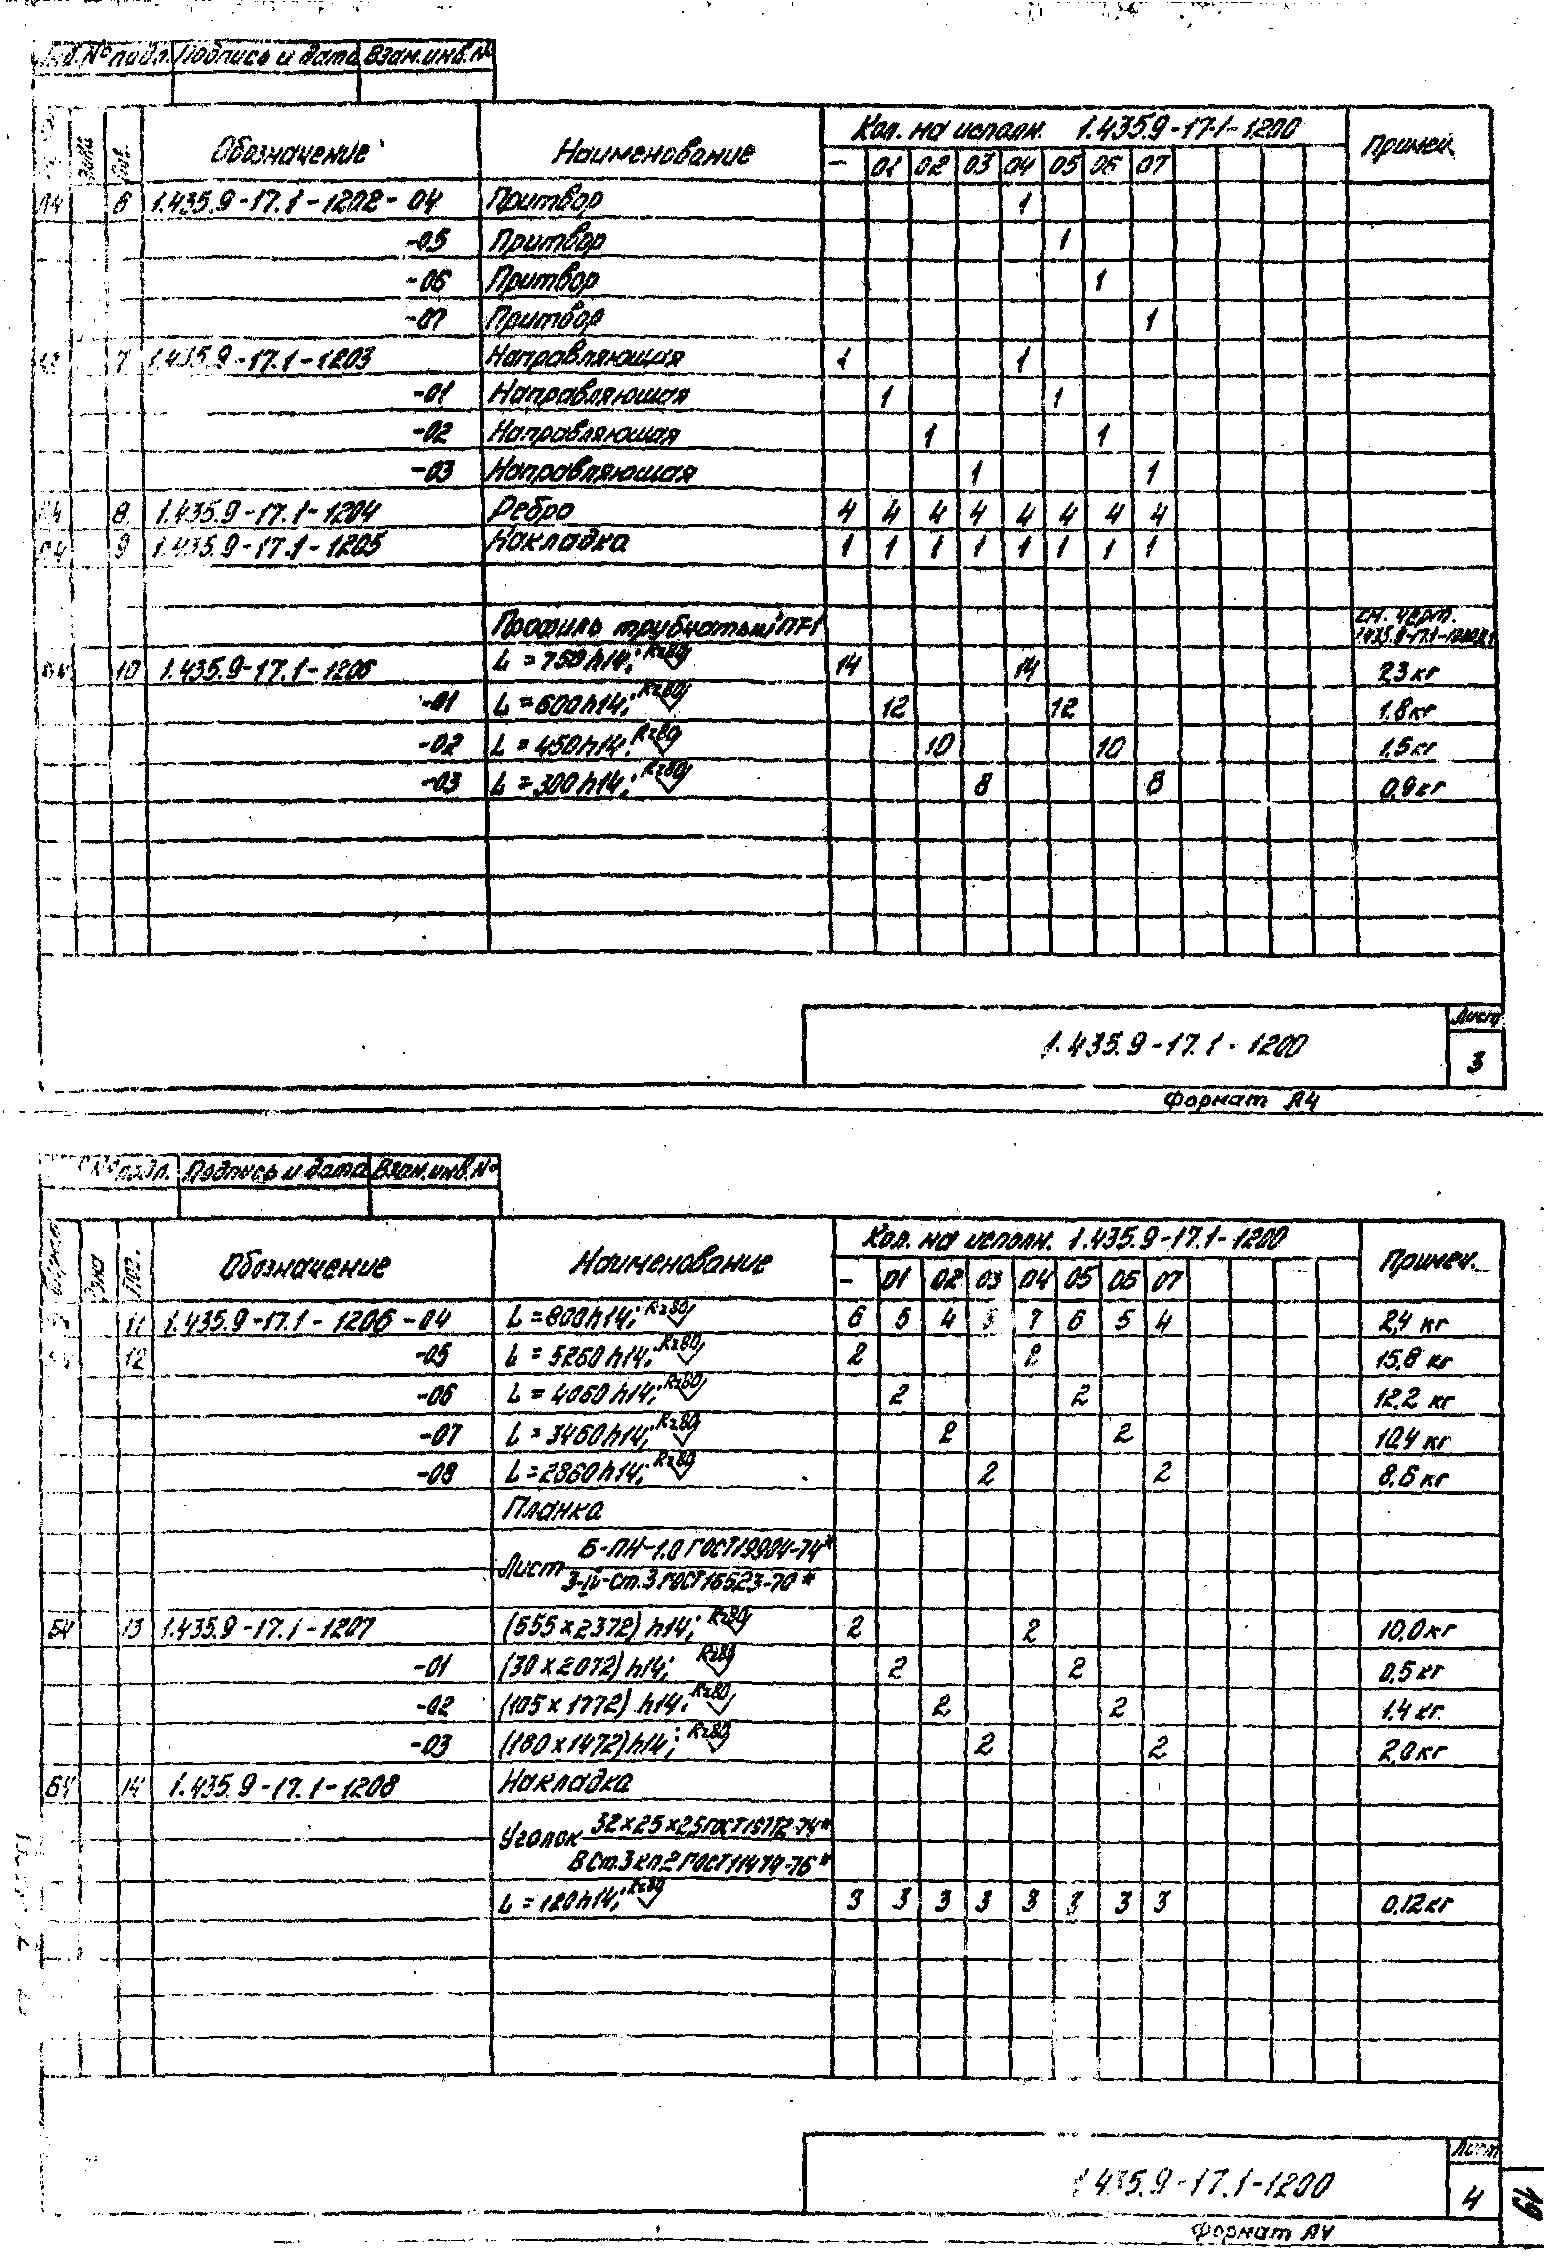 № подл. Подпись и дата Взам.инв.№
Зона Поз. Обозначение Наименование Кол. на исполн. 1.435.9-17.1-1200 Примеч.
- 01 02 03 04 05 06 07
А4 6 1.435.9-17.1-1202-04 Притвор 1
-05 Притвор 1
-06 Притвор 1
-07 Притвор 1
7 1.435.9-17.1-1203 Направляющая 1 1
-01 Направляющая 1 1
-02 Направляющая 1 1
-03 Направляющая 1 1
8 1.435.9-17.1-1204 Ребро 4 4 4 4 4 4 4 4
9 1.435.9-17.1-1205 Накладка 1 1 1 1 1 1 1 1
Профиль трубчатый ПТ-1 см. черт.
10 1.435.9-17.1-1206 L = 750h14; Rz80 14 14 2,3 кг
-01 L = 600h14; Rz80 12 12 1,8 кг
-02 L = 450h14; Rz80 10 10 1,5 кг
-03 L = 300h14; Rz80 8 8 0,9 кг
1.435.9-17.1-1200
Лист
3
Формат А4
№ подл. Подпись и дата Взам.инв.№
Зона Поз. Обозначение Наименование Кол. на исполн. 1.435.9-17.1-1200 Примеч.
- 01 02 03 04 05 06 07
11 1.435.9-17.1-1206-04 L = 800h14; Rz80 6 5 4 3 7 6 5 4 2,4 кг
12 -05 L = 5260h14; Rz80 2 2 15,8 кг
-06 L = 4060h14; Rz80 2 2 12,2 кг
-07 L = 3460h14; Rz80 2 2 10,4 кг
-08 L = 2860h14; Rz80 2 2 8,6 кг
Планка
Лист Б-ПН-1.0 ГОСТ19904-74*
3-IV-Ст.3 ГОСТ16523-70*
БЧ 13 1.435.9-17.1-1207 (555×2372)h14; Rz80 2 2 10,0 кг
-01 (30×2072)h14; Rz80 2 2 0,5 кг
-02 (105×1772)h14; Rz80 2 2 1,4 кг
-03 (180×1472)h14; Rz80 2 2 2,0 кг
БЧ 14 1.435.9-17.1-1208 Накладка
Уголок 32×25×2,5 ГОСТ19772-74*
ВСт.3кп2 ГОСТ11474-76*
L = 120h14; Rz80 3 3 3 3 3 3 3 3 0,12 кг
1.435.9-17.1-1200
Лист
4
Формат А4
19